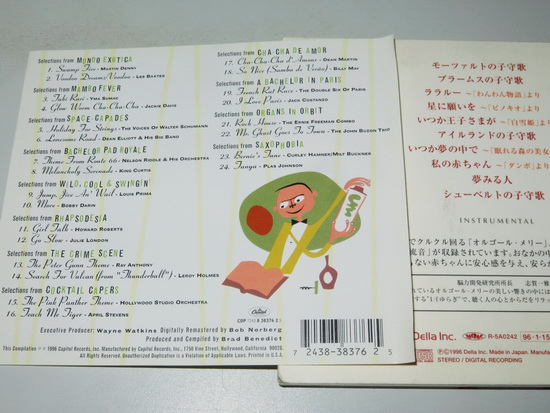 Selections from MONDO EXOTICA
1. Swamp Fire - MARTIN DENNY
2. Voodoo Dreams/Voodoo - LES BAXTER
Selections from MAMBO FEVER
3. Taki Rari - YMA SUMAC
4. Glow Worm Cha-Cha-Cha - JACKIE DAVIS
Selections from SPACE-CAPADES
5. Holiday For Strings - THE VOICES OF WALTER SCHUMANN
6. Lonesome Road - DEAN ELLIOTT & HIS BIG BAND
Selections from BACHELOR PAD ROYALE
7. Theme From Route 66 - NELSON RIDDLE & HIS ORCHESTRA
8. Melancholy Serenade - KING CURTIS
Selections from WILD, COOL & SWINGIN'
9. Jump, Jive An' Wail - LOUIS PRIMA
10. More - BOBBY DARIN
Selections from RHAPSODESIA
11. Girl Talk - HOWARD ROBERTS
12. Go Slow - JULIE LONDON
Selections from THE CRIME SCENE
13. The Peter Gunn Theme - RAY ANTHONY
14. Search For Vulcan (from "Thunderball") - LEROY HOLMES
Selections from COCKTAIL CAPERS
15. The Pink Panther Theme - HOLLYWOOD STUDIO ORCHESTRA
16. Teach Me Tiger - APRIL STEVENS
Selections from CHA-CHA DE AMOR
17. Cha-Cha-Cha d'Amour - DEAN MARTIN
18. So Nice (Samba de Verão) - BILLY MAY
Selections from A BACHELOR IN PARIS
19. French Rat Race - THE DOUBLE SIX OF PARIS
20. I Love Paris - JACK COSTANZO
Selections from ORGANS IN ORBIT
21. Rock House - THE ERNIE FREEMAN COMBO
22. Mr. Ghost Goes To Town - THE JOHN BUZON TRIO
Selections from SAXOPHOBIA
23. Bernie's Tune - CURLEY HAMNER/MILT BUCKNER
24. Tanya - PLAS JOHNSON
Capitol
Executive Producer: Wayne Watkins Digitally Remastered by Bob Norberg
Produced and Compiled by Brad Benedict
This Compilation ℗ © 1996 Capitol Records, Inc. Manufactured by Capitol Records, Inc., 1750 Vine Street, Hollywood, California 90028.
All Rights Reserved. Unauthorized Duplication is a Violation of Applicable Laws. Printed in U.S.A.
7 2438-38376 2 5
モーツァルトの子守歌
ブラームスの子守歌
ララルー ～「わんわん物語」より
星に願いを ～「ピノキオ」より
いつか王子さまが ～「白雪姫」より
アイルランドの子守歌
いつか夢の中で ～「眠れる森の美女
私の赤ちゃん ～「ダンボ」より
夢みる人
シューベルトの子守歌
INSTRUMENTAL
でクルクル回る「オルゴール・メリー」
Della Inc.
R-5A0242
96・1・15
℗©1996 Della Inc. Made in Japan.
STEREO / DIGITAL RECORDING